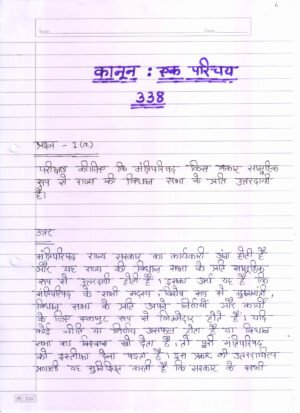 Topic
Date
कानून : एक परिचय
338
प्रश्न - 1(a)
परीक्षण कीजिए कि मंत्रिपरिषद किस प्रकार सामूहिक
रूप से राज्य की विधान सभा के प्रति उत्तरदायी
है।
उत्तर
मंत्रिपरिषद राज्य सरकार का कार्यकारी अंग होती है
और यह राज्य की विधान सभा के प्रति सामूहिक
रूप से उत्तरदायी होती है। इसका अर्थ यह है कि
मंत्रिपरिषद के सभी सदस्य, विशेष रूप से मुख्यमंत्री,
विधान सभा के प्रति अपने निर्णयों और कार्यों
के लिए एकजुट रूप से जिम्मेदार होते हैं। यदि
कोई नीति या निर्णय असफल होता है या विधान
सभा का विश्वास खो देता है, तो पूरी मंत्रिपरिषद
को इस्तीफा देना पड़ता है। इस प्रकार की उत्तरदायित्व
प्रणाली यह सुनिश्चित करती है कि सरकार के सभी